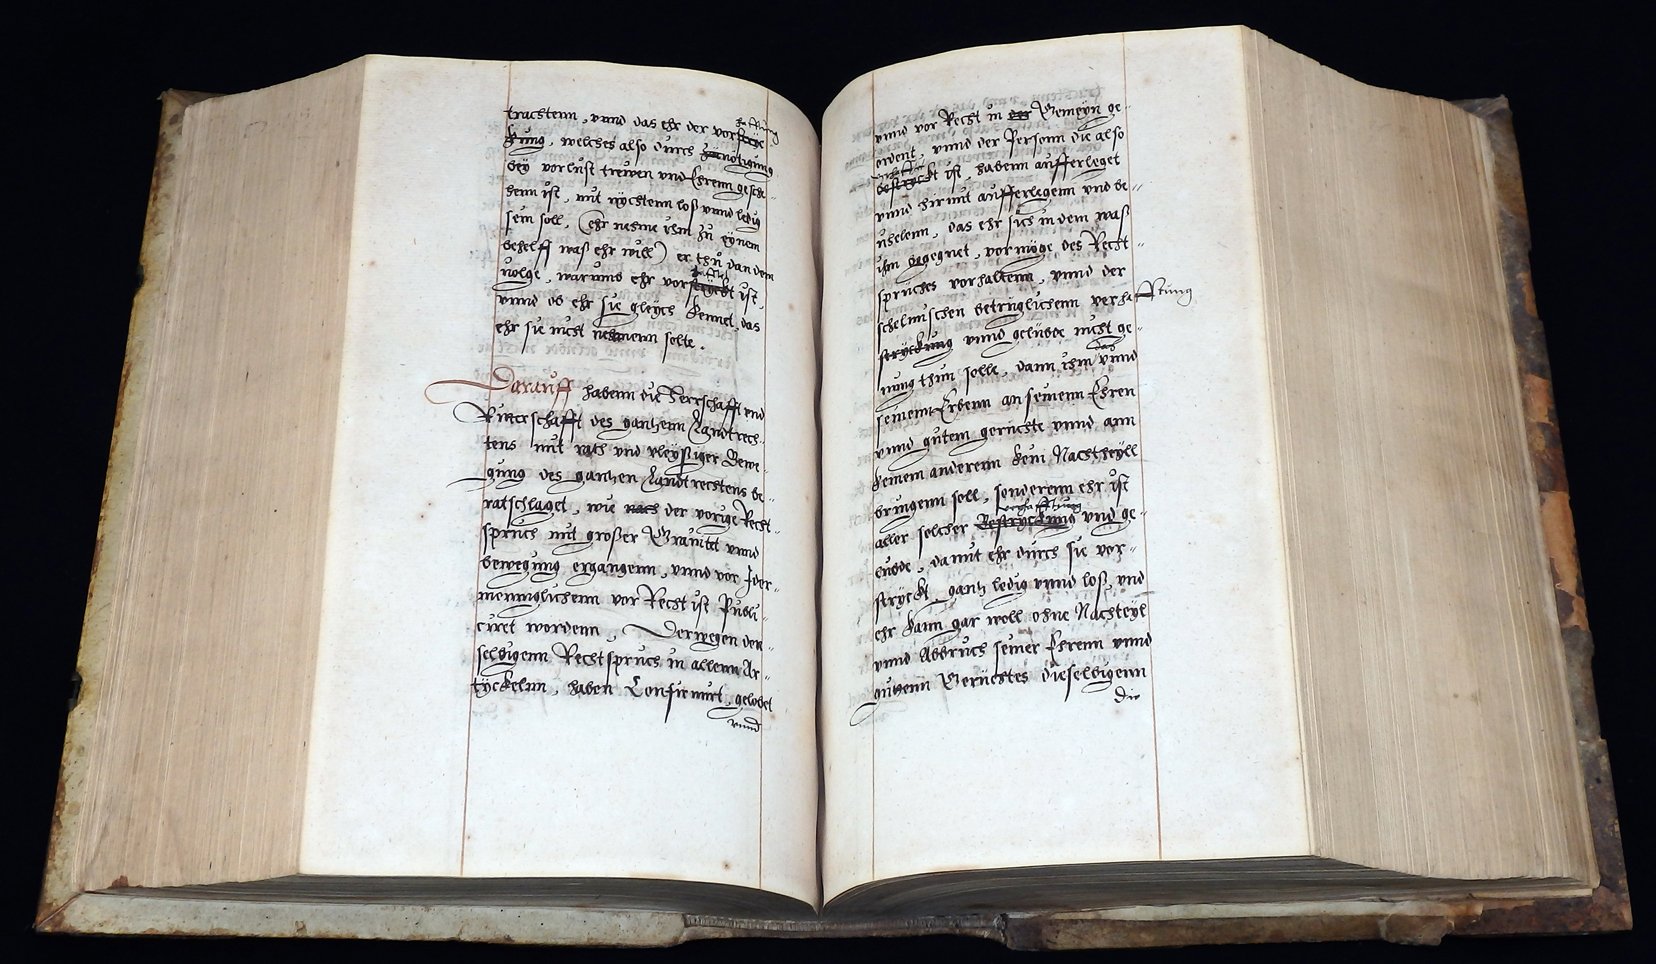 trachtenn, vnnd das ehr der vorstryc
hafftung
kung, welches also durch zunötigung
bey vorlust trewen vnd Ehrenn gesche-
henn ist, mit nychtenn loß vnnd ledig
sein soll, (ehr nehme ihm zu eynem
behelff waß ehr will) er thu dan dem
uolge, warumb ehr vorstryckt ist,
hafftet
vnnd ob ehr sie gleych kennet, das
ehr sie nicht nehmenn solte.
Darauff habenn die Herrschafft vnd
Ritterschafft des gantzenn Landtrech-
tens mit rath vnd vleyßiger Bewe-
gung des gantzen Landtrechtens be-
ratschlaget, wie nach der vorige Recht-
spruch mit großer Gravitet vnnd
bewegung ergangenn, vnnd vor Jder-
menniglichenn vor Recht ist Publi-
ciret wordenn, Derwegen den-
selbigenn Rechtspruch in allenn Ar-
tyckelnn, haben Confirmirt, gelobet
vnnd
vnnd vor Recht in der Gemeyn ge-
ordent, vnnd der Personn die also
verhafft
bestryckt ist, habenn aufferleget
vnnd hirmit aufferlegenn vnd be-
uhelenn, das ehr sich in dem waß
ihm begegnet, vormöge des Recht-
spruches vorhaltenn, vnnd der
schelmischen betriglichenn verhafftung
stryckung vnnd gelübde nicht ge-
nung thun solle, dann ihm vnnd
das
seinenn Erbenn an seinenn Ehren
vnnd gutem geruchte vnnd ann
keinem anderenn kein Nachtheyll
bringenn soll, sonderenn ehr ist
aller solcher Bestryckung vnnd ge-
verhafftung
lubde, damit ehr durch sie vor-
stryckt, gantz ledig vnnd loß, vnd
ehr kann gar woll ohne Nachteyl
vnnd Abbruch seiner Ehrenn vnnd
gutenn Gerüchtes dieselbigenn
die